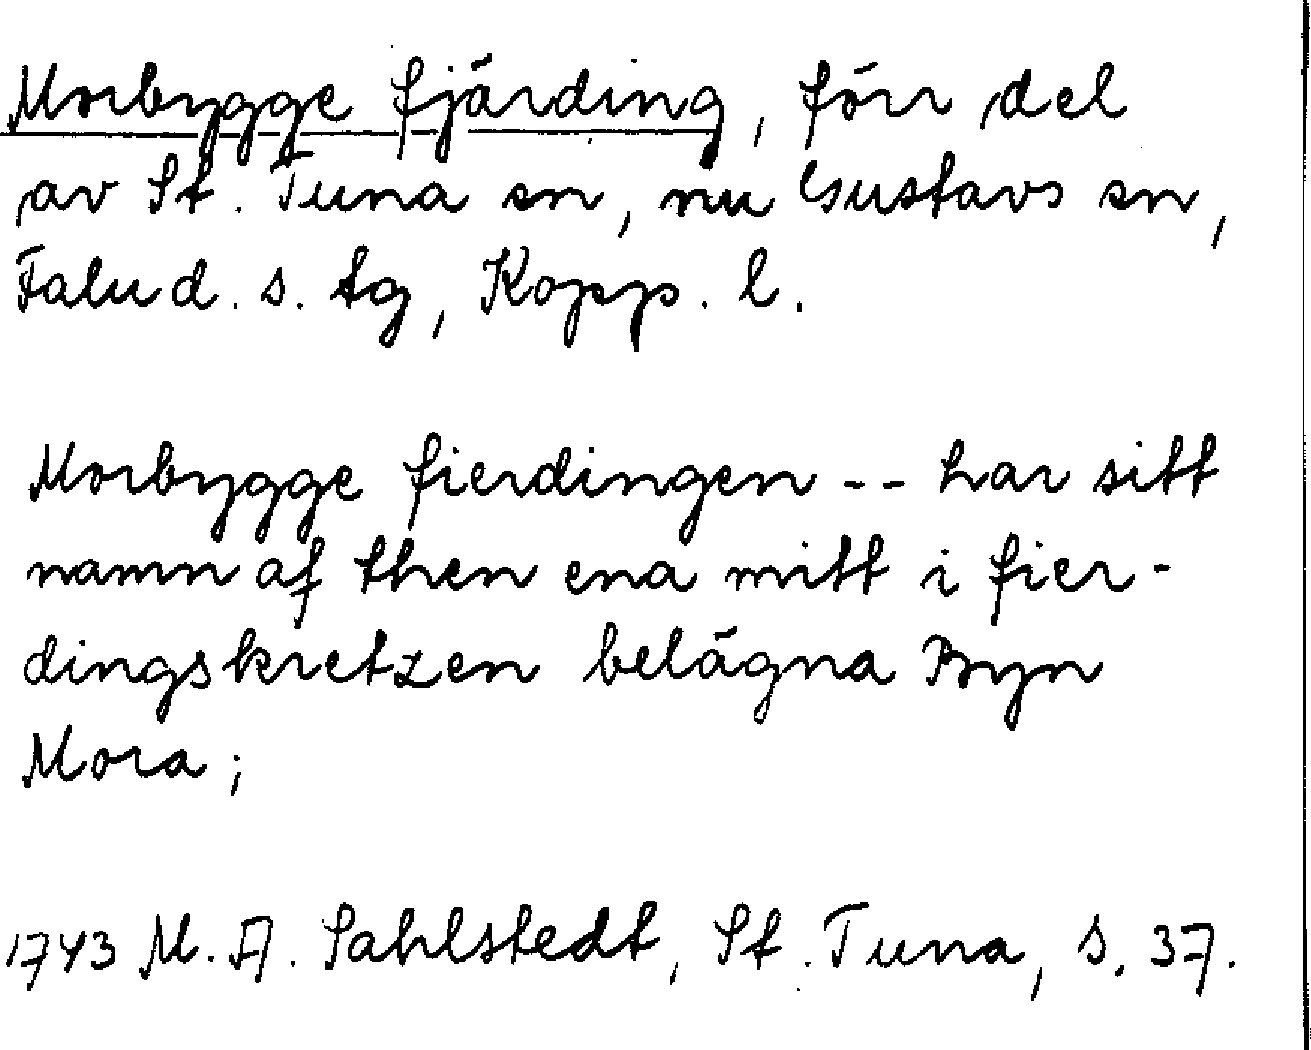 Morbygge fjärding, förr del
av St. Tuna sn, nu Gustavs sn,
Falu d. s. tg, Kopp. l.
Morbygge fierdingen -- har sitt
namn af then ena mitt i fier-
dingskretzen belägna Byn
Mora;
1743 M. A. Sahlstedt, St. Tuna, s. 37.